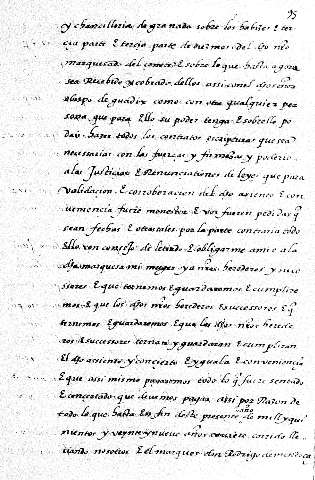 95
y chancilleria de granada sobre los habizes E ter
cia parte E tercia parte de diezmos del dho mio
marquesado del cenete E sobre lo que hasta agora
sea Recebido y cobrado dellos assi con el dho señor
obispo de guadix como con otra qualquier per
sona que para Ello su poder tenga E sobrello po
days hazer todos los contratos escripturas que sea
necessarias con las fuerças y firmezas y poderio
a las Justicias E Renunciationes de leyes que para
validacion E corroboracion del dho asiento E con
veniencia fuere menester E vos fueren pedidas q
sean fechas E otorgadas por la parte contraria todo
Ello con consejo de letrado E obligarme a mi e a la
dha marquesa mi muger y a nros herederos y suce
ssores E que ternemos E guardaremos E cumplire
mos E que los dhos nros herederos E successores E q
ternemos E guardaremos E que los dhos nros herede
ros E successores ternan y guardaran E cumpliran
El dho assiento y concierto E yguala E conveniencia
E que assi mismo pagaremos todo lo q fuere sentado
E concertado que devemos pagar assi por Razon de
todo lo que hasta En fin deste presente año de mill y qui
nientos y veynte y nueve años
tiando nosotros E el marques don Rodrigo de mendoça